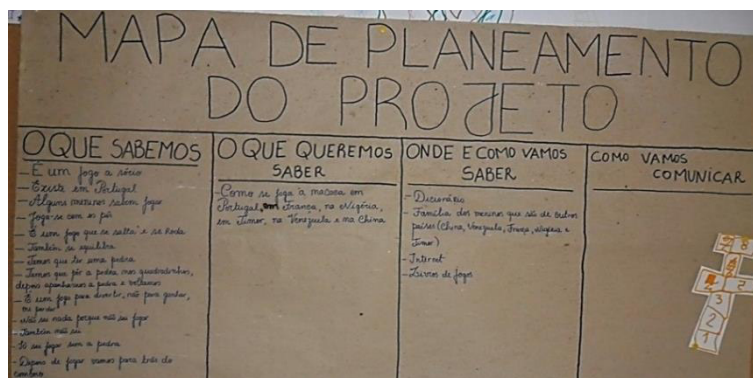 MAPA DE PLANEAMENTO
DO PROJETO
O QUE SABEMOS
- É um jogo a sério
- Existe em Portugal
- Alguns meninos sabem jogar
- Joga-se com os pés
- É um jogo que se salta e se roda
- Também se equilibra
- Temos que ter uma pedra
- Temos que pôr a pedra nos quadradinhos,
depois apanhamos a pedra e voltamos
- É um jogo para divertir, não para ganhar,
ou perder
- Não sei nada porque não sei jogar
- Também não sei
- Só sei jogar sem a pedra
- Depois de jogar vamos para trás do
comboio
O QUE QUEREMOS
SABER
- Como se joga à macaca em
Portugal, em França, na Nigéria,
em Timor, na Venezuela e na China
ONDE E COMO VAMOS
SABER
- Dicionário
- Família dos meninos que são de outros
países (China, Venezuela, França, Nigéria e
Timor)
- Internet
- Livros de jogos
COMO VAMOS
COMUNICAR
8
7
3
2
1